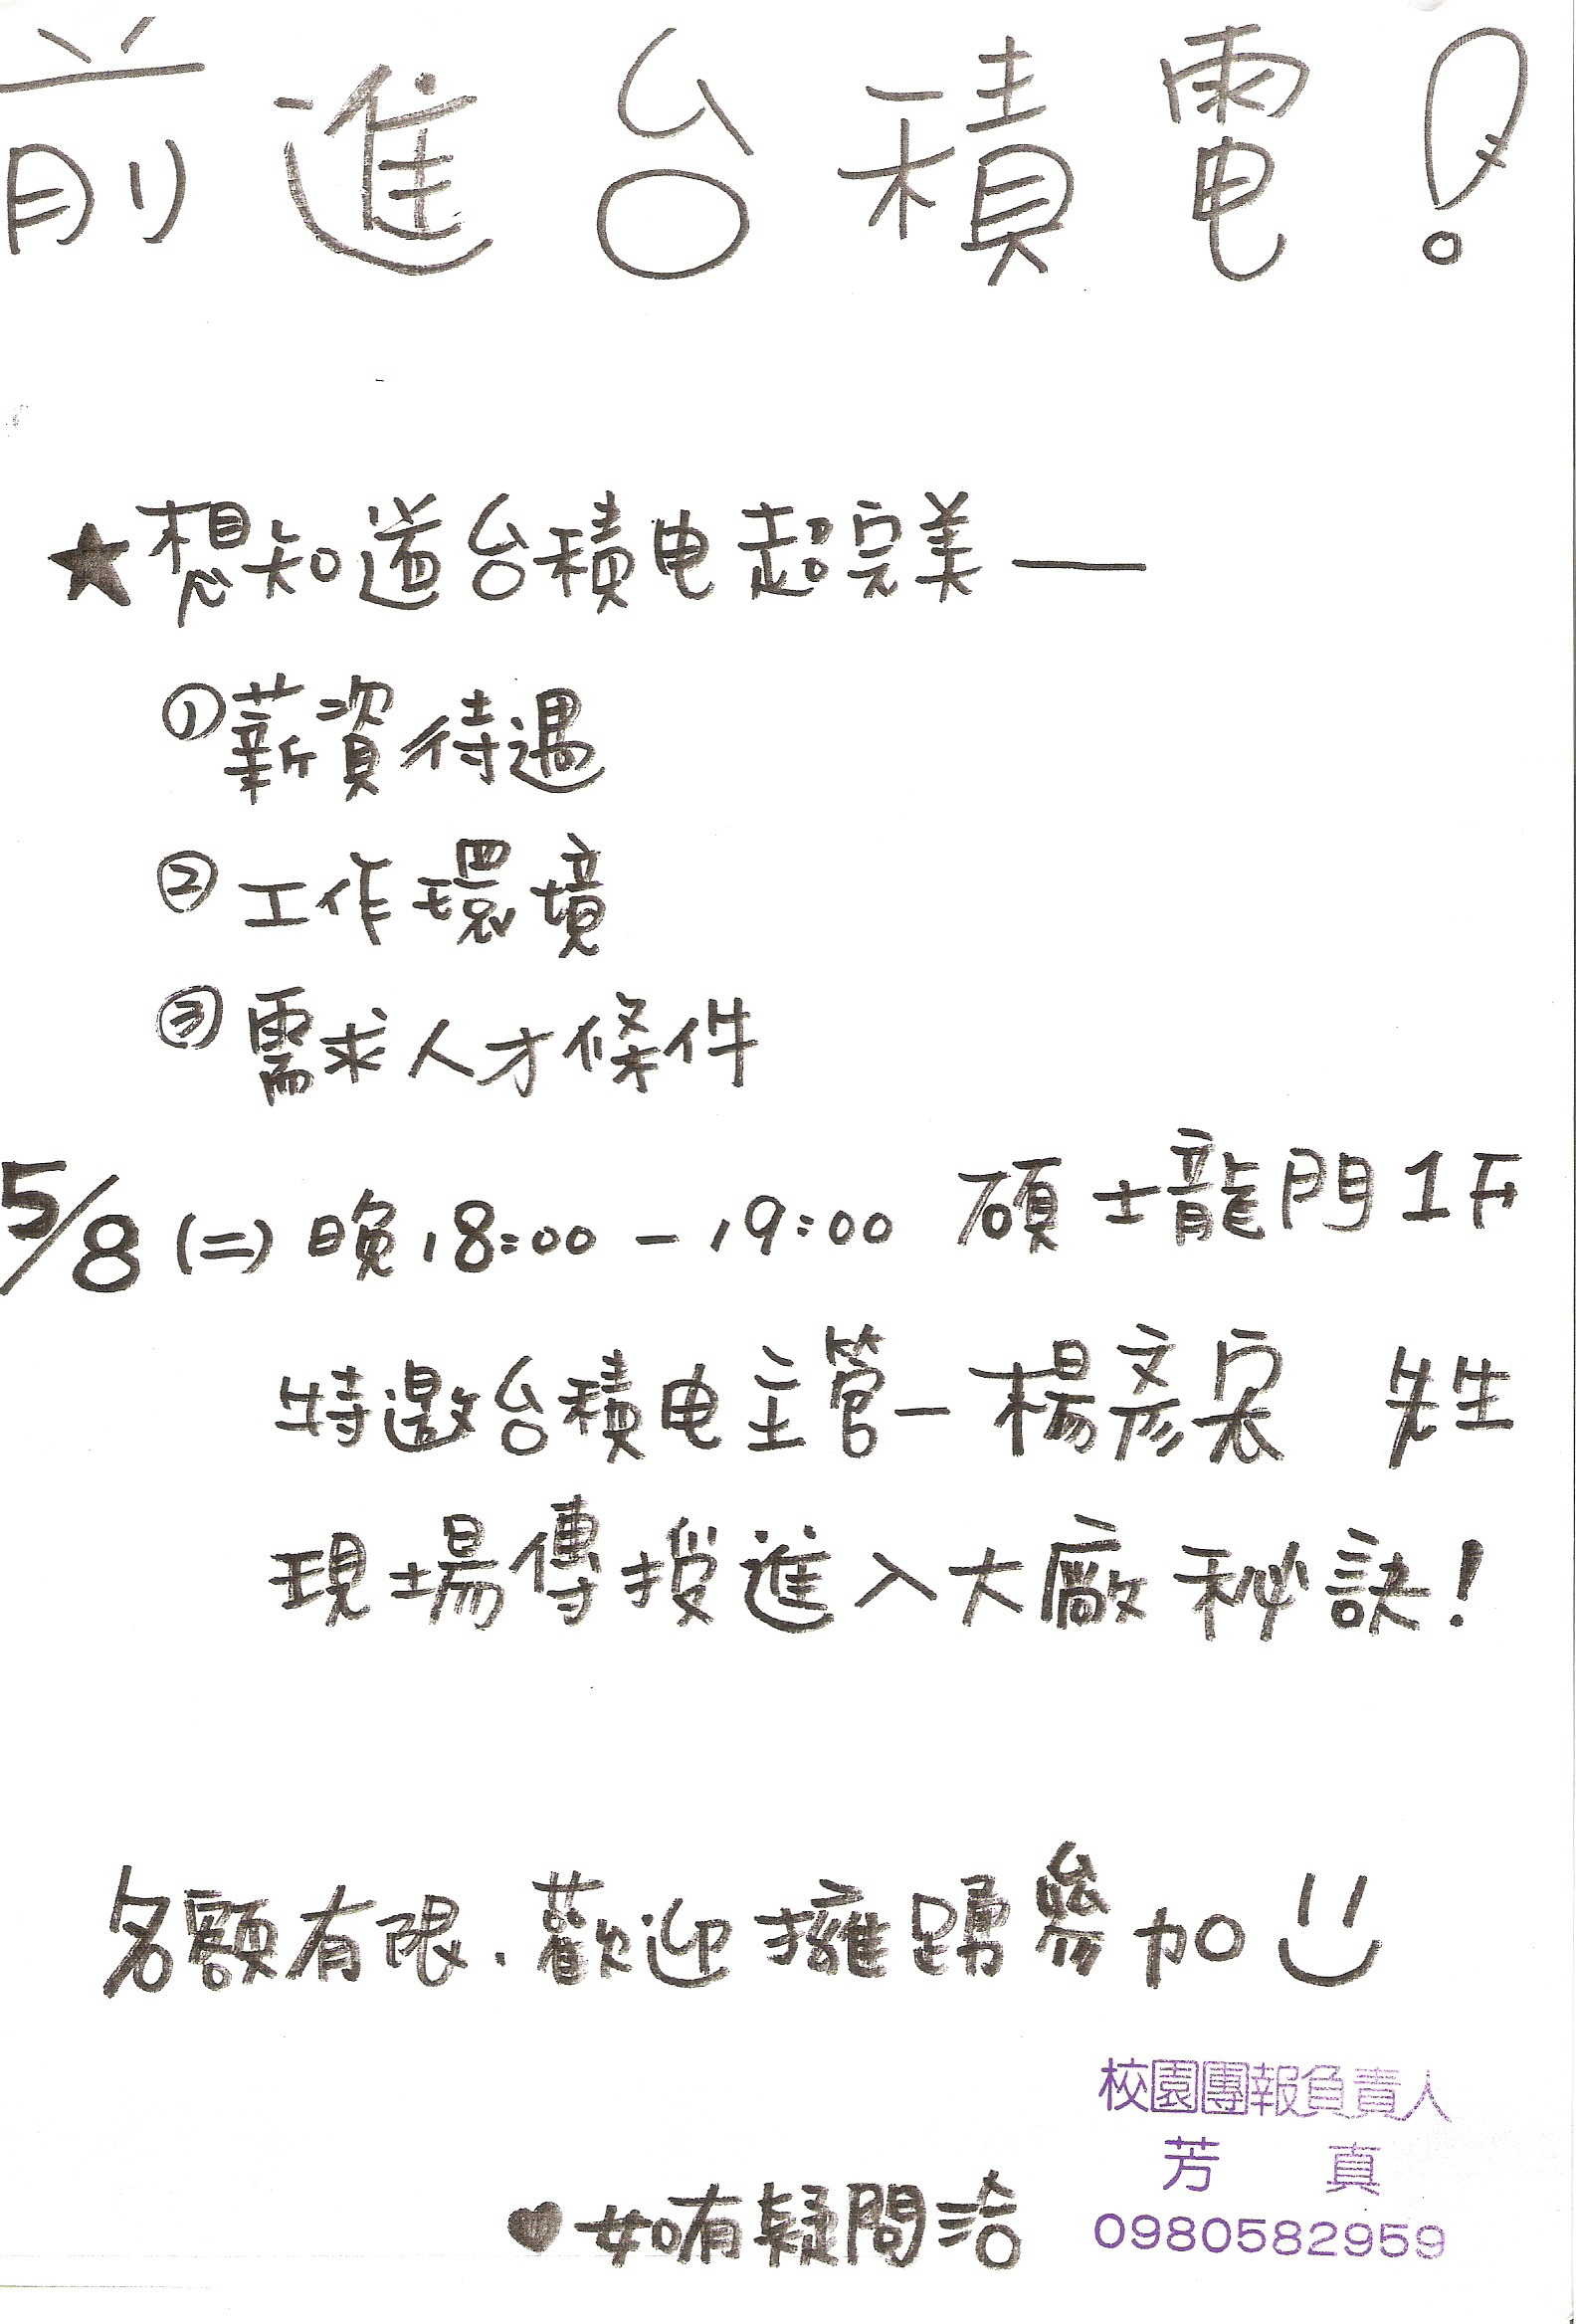 前進台積電!
★想知道台積电超完美—
①薪資待遇
②工作環境
③需求人才條件
5/8(二)晚18:00-19:00 碩士龍門1F
特邀台積电主管-楊彥 先生
現場傳授進入大廠秘訣!
名額有限.歡迎擁踴參加
校園團報負責人
芳真
♥如有疑問洽
0980582959